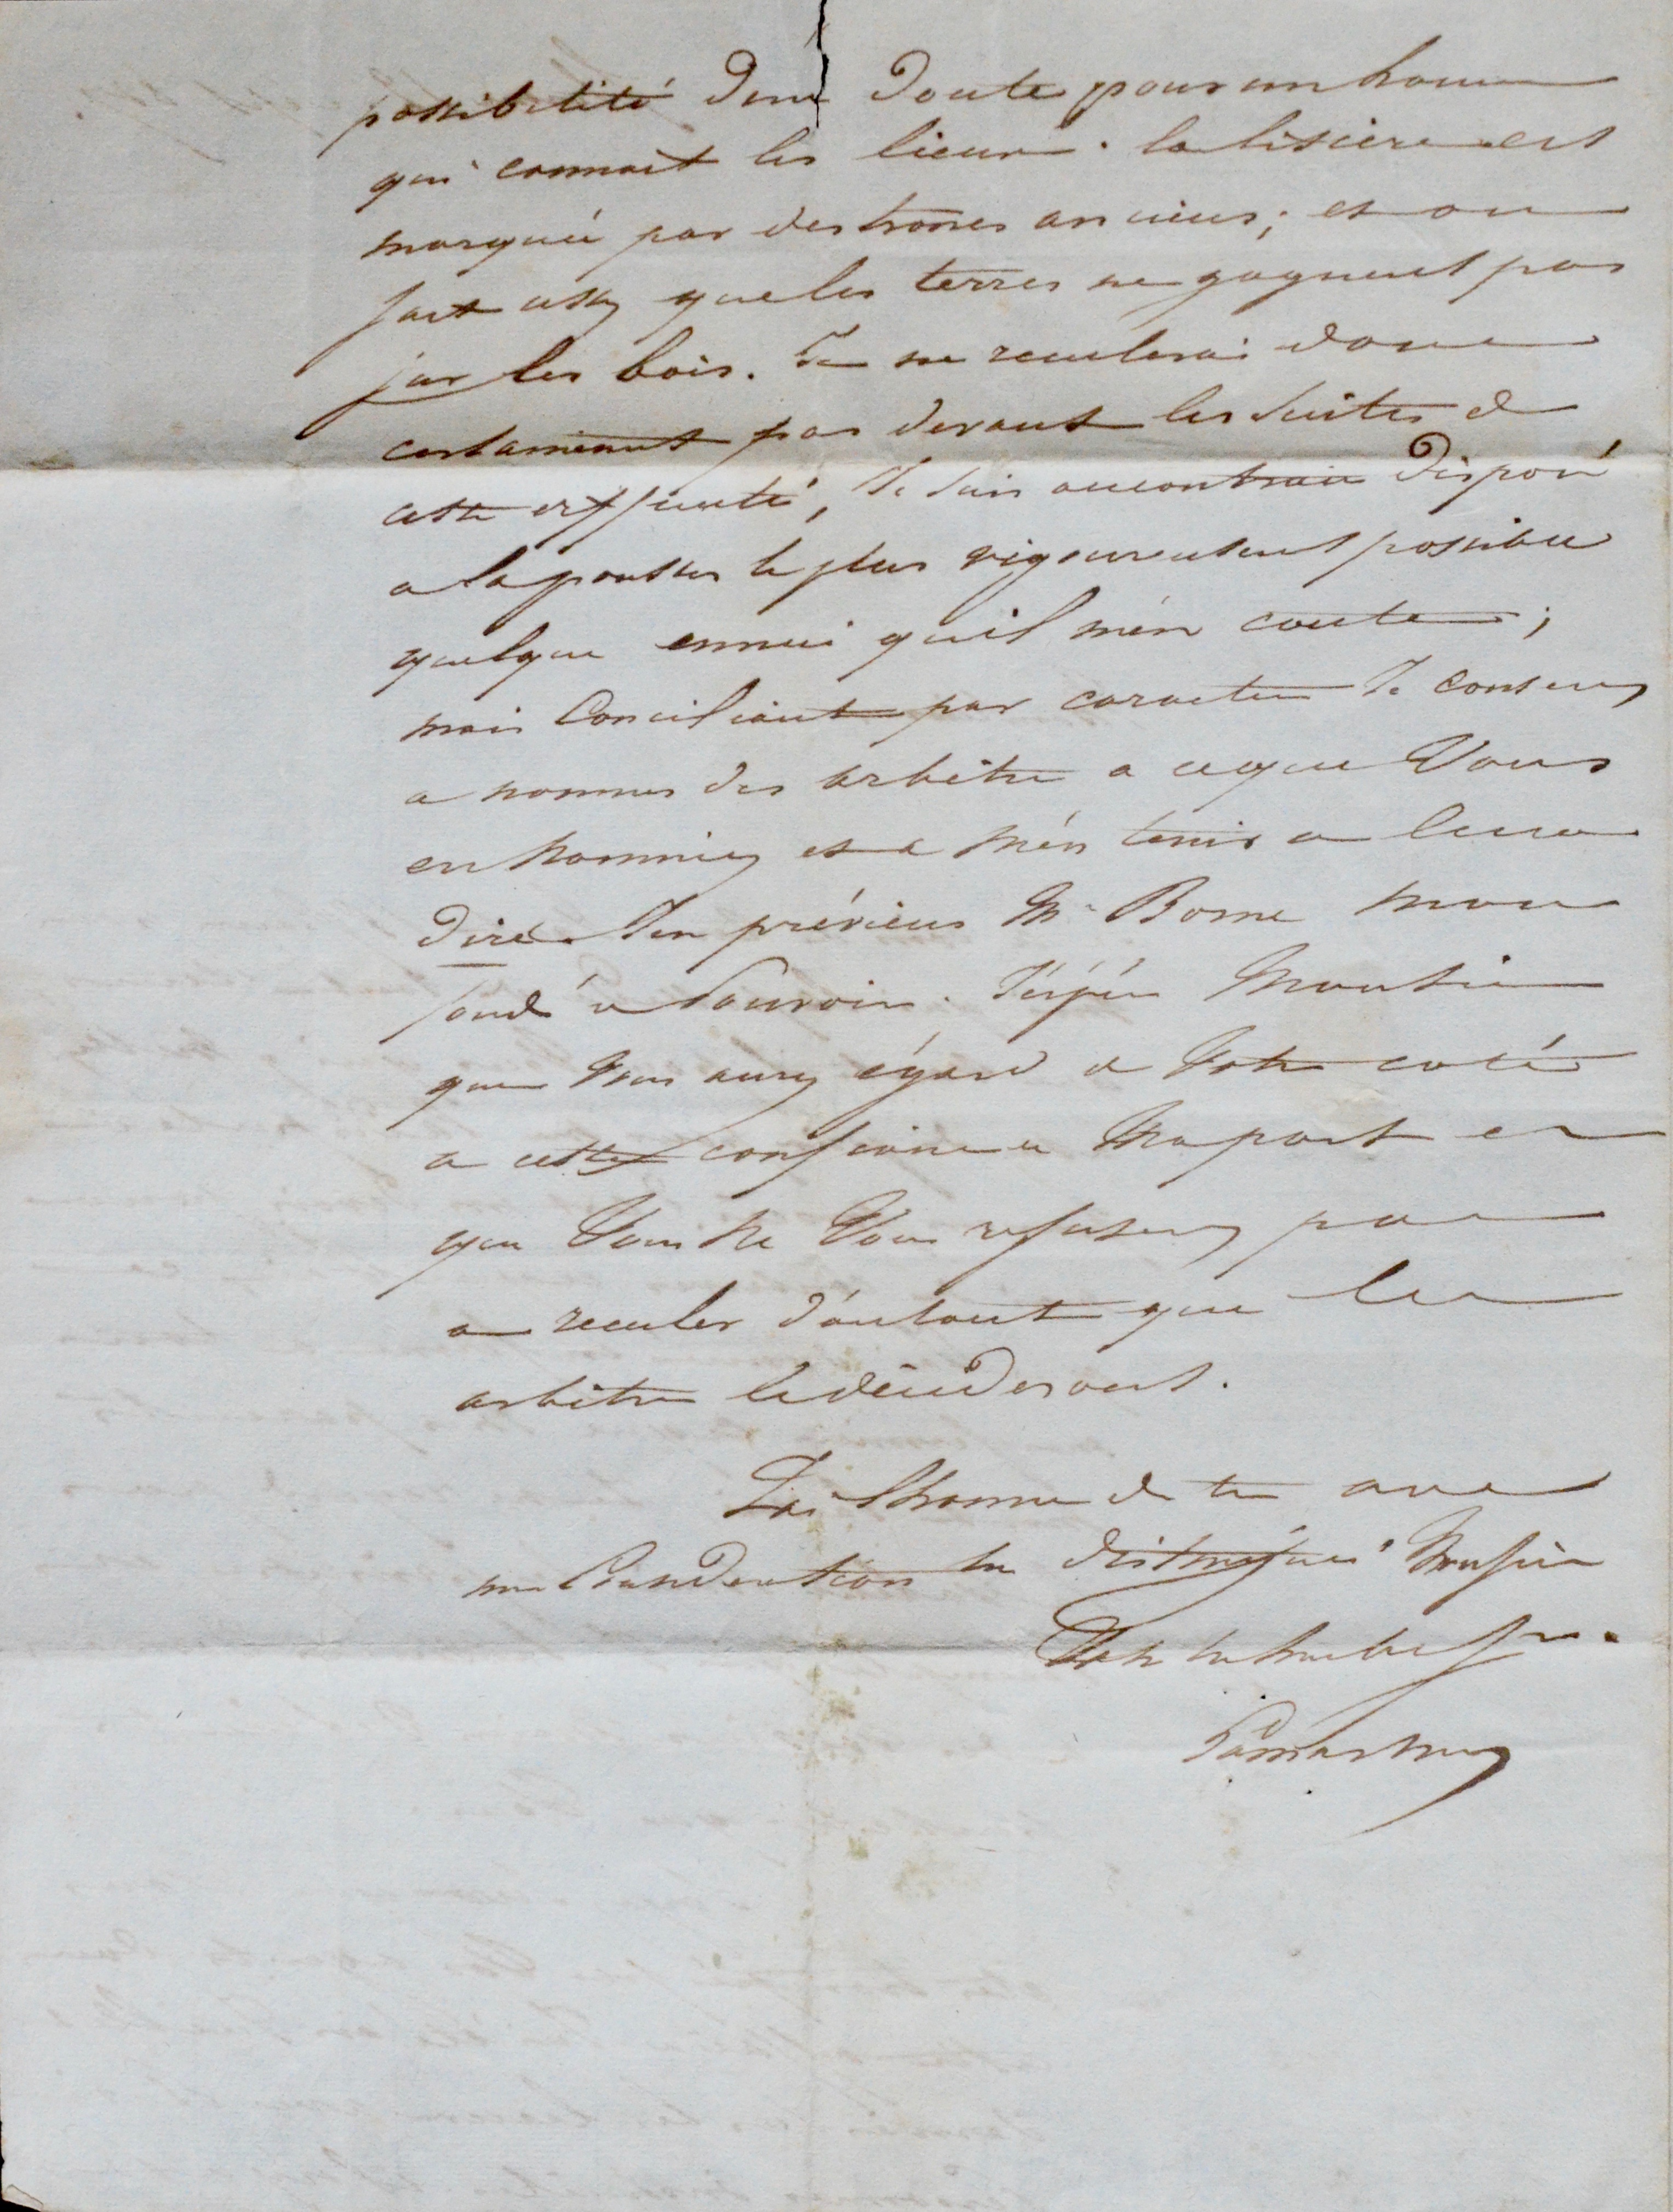 possibilité d'un doute pour un homme
qui connait les lieux. la lisiere est
marquée par des troncs anciens; et on
sait assez que les terres ne gagnent pas
sur les bois. Je ne reculerai donc
certainement pas devant les suites de
cette expertise, Je suis au contraire disposé
a la pousser le plus vigoureusement possible
quelque ennui qu'il m'en coute;
mais Conciliant par caractere Je consens
a nommer des arbitres a ce que Vous
en nommiez et a m'en tenir a leur
dire. J'en préviens Mr Borne mon
fondé de Pouvoir. J'espère Monsieur
que Vous aurez égard de Votre coté
a cette confiance de Ma part et
que Vous Ne Vous refuserez pas
a reculer d'autant que les
arbitres le décideront.
J'ai l'honneur de être avec
ma Consideration la distinguée Monsieur
Votre tres humble Sr.